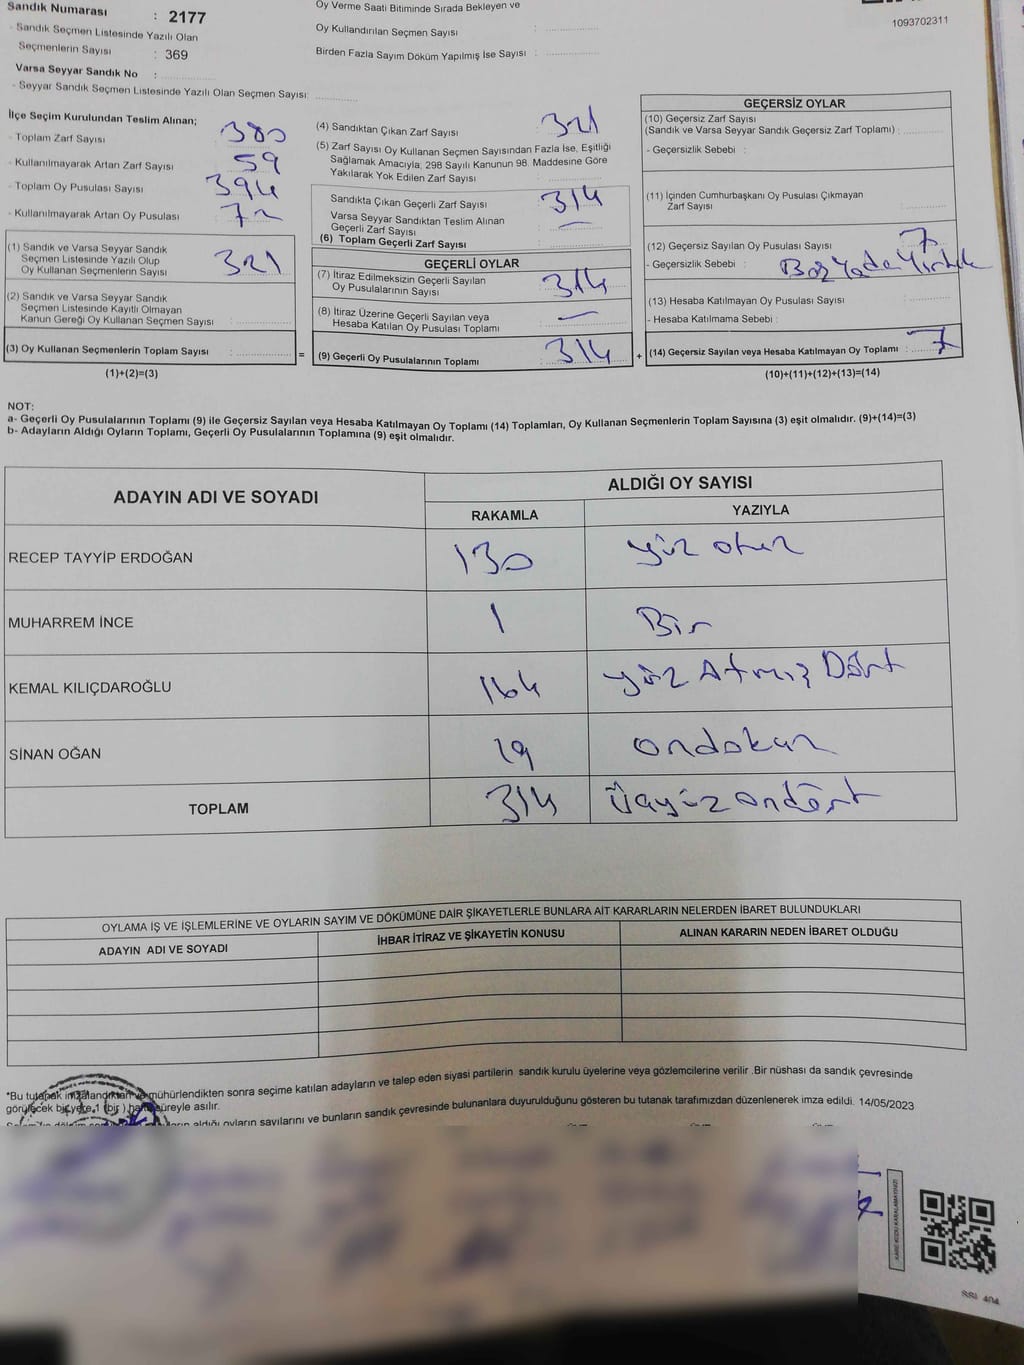 Sandık Numarası : 2177
- Sandık Seçmen Listesinde Yazılı Olan
Seçmenlerin Sayısı : 369
Varsa Seyyar Sandık No :
- Seyyar Sandık Seçmen Listesinde Yazılı Olan Seçmen Sayısı:
Oy Verme Saati Bitiminde Sırada Bekleyen ve
Oy Kullandırılan Seçmen Sayısı :
Birden Fazla Sayım Döküm Yapılmış İse Sayısı :
1093702311
İlçe Seçim Kurulundan Teslim Alınan;
- Toplam Zarf Sayısı 380
- Kullanılmayarak Artan Zarf Sayısı 59
- Toplam Oy Pusulası Sayısı 394
- Kullanılmayarak Artan Oy Pusulası 72
(1) Sandık ve Varsa Seyyar Sandık
Seçmen Listesinde Yazılı Olup
Oy Kullanan Seçmenlerin Sayısı 321
(2) Sandık ve Varsa Seyyar Sandık
Seçmen Listesinde Kayıtlı Olmayan
Kanun Gereği Oy Kullanan Seçmen Sayısı :
(3) Oy Kullanan Seçmenlerin Toplam Sayısı : =
(1)+(2)=(3)
(4) Sandıktan Çıkan Zarf Sayısı 321
(5) Zarf Sayısı Oy Kullanan Seçmen Sayısından Fazla İse, Eşitliği
Sağlamak Amacıyla; 298 Sayılı Kanunun 98. Maddesine Göre
Yakılarak Yok Edilen Zarf Sayısı
Sandıkta Çıkan Geçerli Zarf Sayısı 314
Varsa Seyyar Sandıktan Teslim Alınan
Geçerli Zarf Sayısı —
(6) Toplam Geçerli Zarf Sayısı
GEÇERLİ OYLAR
(7) İtiraz Edilmeksizin Geçerli Sayılan
Oy Pusulalarının Sayısı 314
(8) İtiraz Üzerine Geçerli Sayılan veya
Hesaba Katılan Oy Pusulası Toplamı —
(9) Geçerli Oy Pusulalarının Toplamı 314 +
GEÇERSİZ OYLAR
(10) Geçersiz Zarf Sayısı
(Sandık ve Varsa Seyyar Sandık Geçersiz Zarf Toplamı) :
- Geçersizlik Sebebi :
(11) İçinden Cumhurbaşkanı Oy Pusulası Çıkmayan
Zarf Sayısı
(12) Geçersiz Sayılan Oy Pusulası Sayısı 7
- Geçersizlik Sebebi : Boş Yada Yırtık
(13) Hesaba Katılmayan Oy Pusulası Sayısı
- Hesaba Katılmama Sebebi :
(14) Geçersiz Sayılan veya Hesaba Katılmayan Oy Toplamı : 7
(10)+(11)+(12)+(13)=(14)
NOT:
a- Geçerli Oy Pusulalarının Toplamı (9) ile Geçersiz Sayılan veya Hesaba Katılmayan Oy Toplamı (14) Toplamları, Oy Kullanan Seçmenlerin Toplam Sayısına (3) eşit olmalıdır. (9)+(14)=(3)
b- Adayların Aldığı Oyların Toplamı, Geçerli Oy Pusulalarının Toplamına (9) eşit olmalıdır.
ADAYIN ADI VE SOYADI ALDIĞI OY SAYISI
RAKAMLA YAZIYLA
RECEP TAYYİP ERDOĞAN 130 yüz otuz
MUHARREM İNCE 1 Bir
KEMAL KILIÇDAROĞLU 164 yüz Atmış Dört
SİNAN OĞAN 19 ondokuz
TOPLAM 314 Üçyüz ondört
OYLAMA İŞ VE İŞLEMLERİNE VE OYLARIN SAYIM VE DÖKÜMÜNE DAİR ŞİKAYETLERLE BUNLARA AİT KARARLARIN NELERDEN İBARET BULUNDUKLARI
ADAYIN ADI VE SOYADI İHBAR İTİRAZ VE ŞİKAYETİN KONUSU ALINAN KARARIN NEDEN İBARET OLDUĞU
*Bu tutanak imzalandıktan ve mühürlendikten sonra seçime katılan adayların ve talep eden siyasi partilerin sandık kurulu üyelerine veya gözlemcilerine verilir .Bir nüshası da sandık çevresinde
görülecek bir yere 1 (bir ) hafta süreyle asılır.
aldığı oyların sayılarını ve bunların sandık çevresinde bulunanlara duyurulduğunu gösteren bu tutanak tarafımızdan düzenlenerek imza edildi. 14/05/2023
KARE KODU KARALAMAYINIZ!